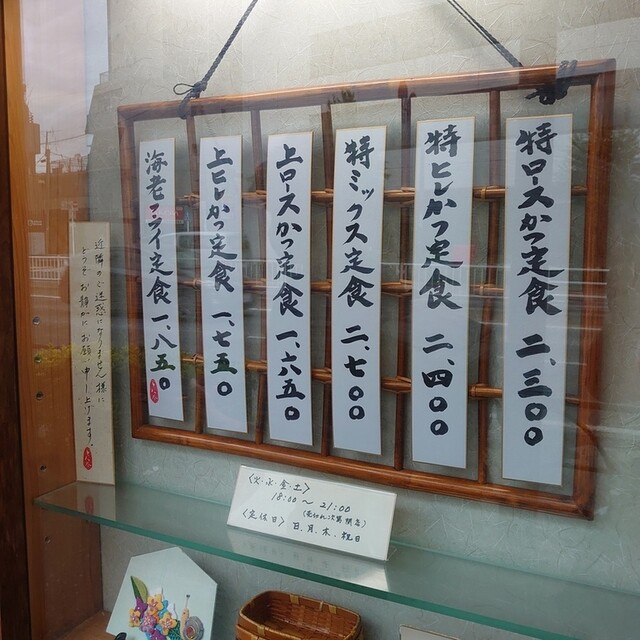 特ロースかつ定食 二、三〇〇
特ヒレかつ定食 二、四〇〇
特ミックス定食 二、七〇〇
上ロースかつ定食 一、六五〇
上ヒレかつ定食 一、七五〇
海老フライ定食 一、八五〇
近隣のご迷惑になりません様に
どうぞお静かにお願い申し上げます。
〈火・水・金・土〉
18:00〜21:00
(売切れ次第閉店)
〈定休日〉日、月、木、祝日